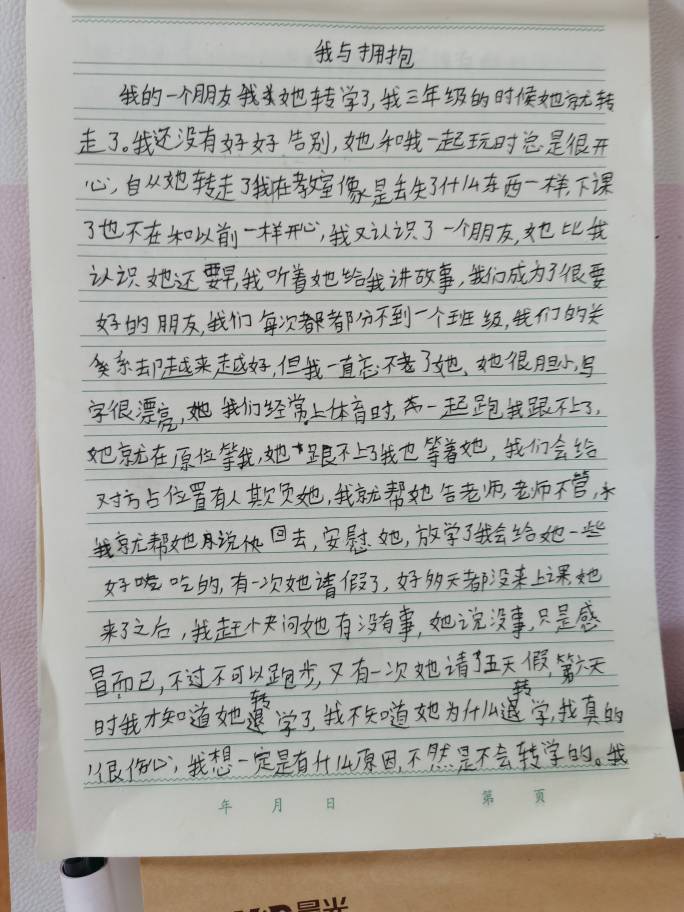 我与拥抱
我的一个朋友我她转学了,我三年级的时候她就转
走了。我还没有好好告别,她和我一起玩时总是很开
心,自从她转走了我在教室像是丢失了什么东西一样,下课
了也不在和以前一样开心,我又认识了一个朋友,她比我
认识她还要早,我听着她给我讲故事,我们成为了很要
好的朋友,我们每次都都分不到一个班级,我们的关
系却越来越好,但我一直忘不了她,她很胆小,写
字很漂亮,她我们经常上体育时,一起跑我跟不上了,
她就在原位等我,她跟不上了我也等着她,我们会给
对方占位置有人欺负她,我就帮她告老师,老师不管,
我就帮她说回去,安慰她,放学了我会给她一些
好吃的,有一次她请假了,好多天都没来上课她
来了之后,我赶快问她有没有事,她说没事,只是感
冒而已,不过不可以跑步,又有一次她请了五天假,第六天
时我才知道她转学了,我不知道她为什么转学,我真的
很伤心,我想一定是有什么原因,不然是不会转学的。我
年 月 日 第 页
晨光